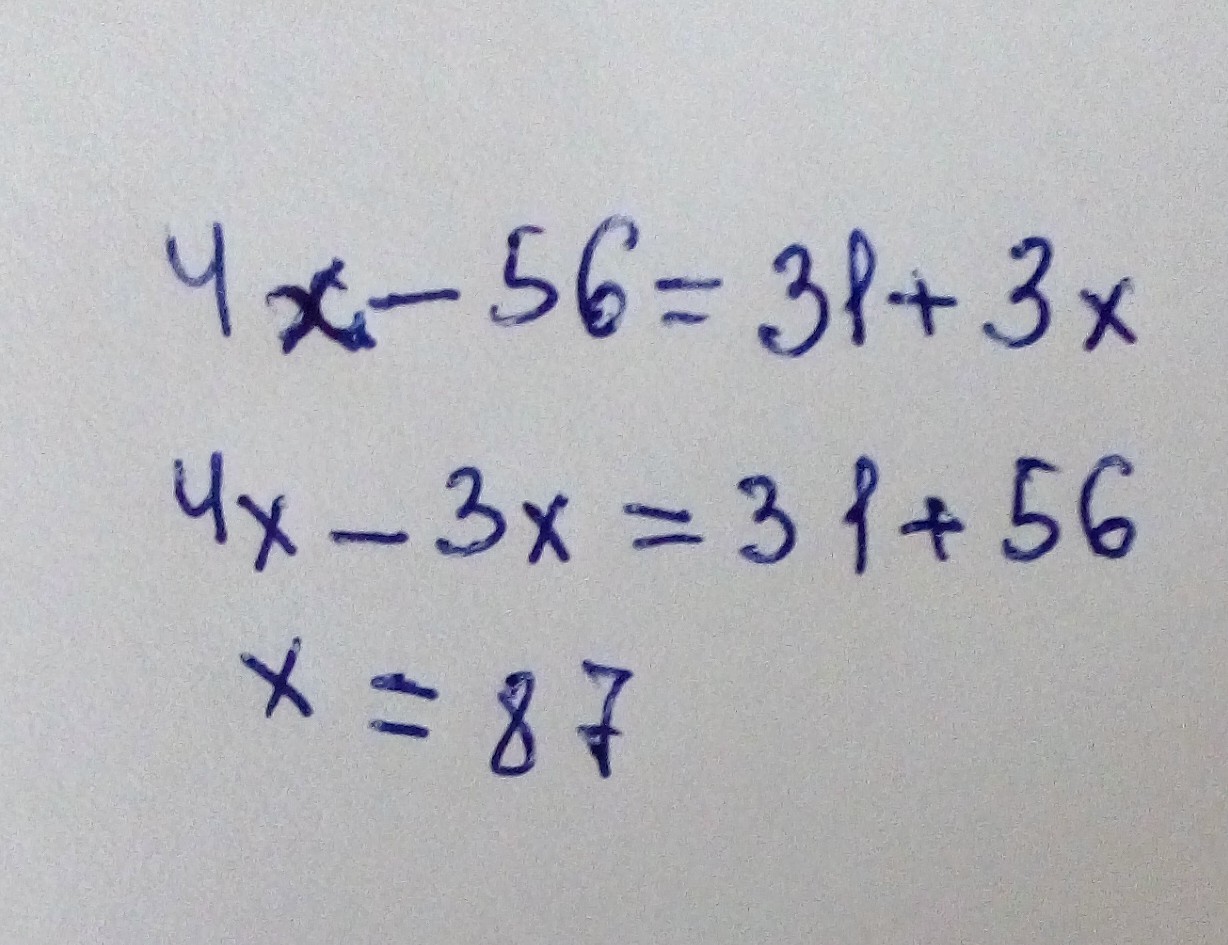 4x - 56 = 31 + 3x
4x - 3x = 31 + 56
x = 87